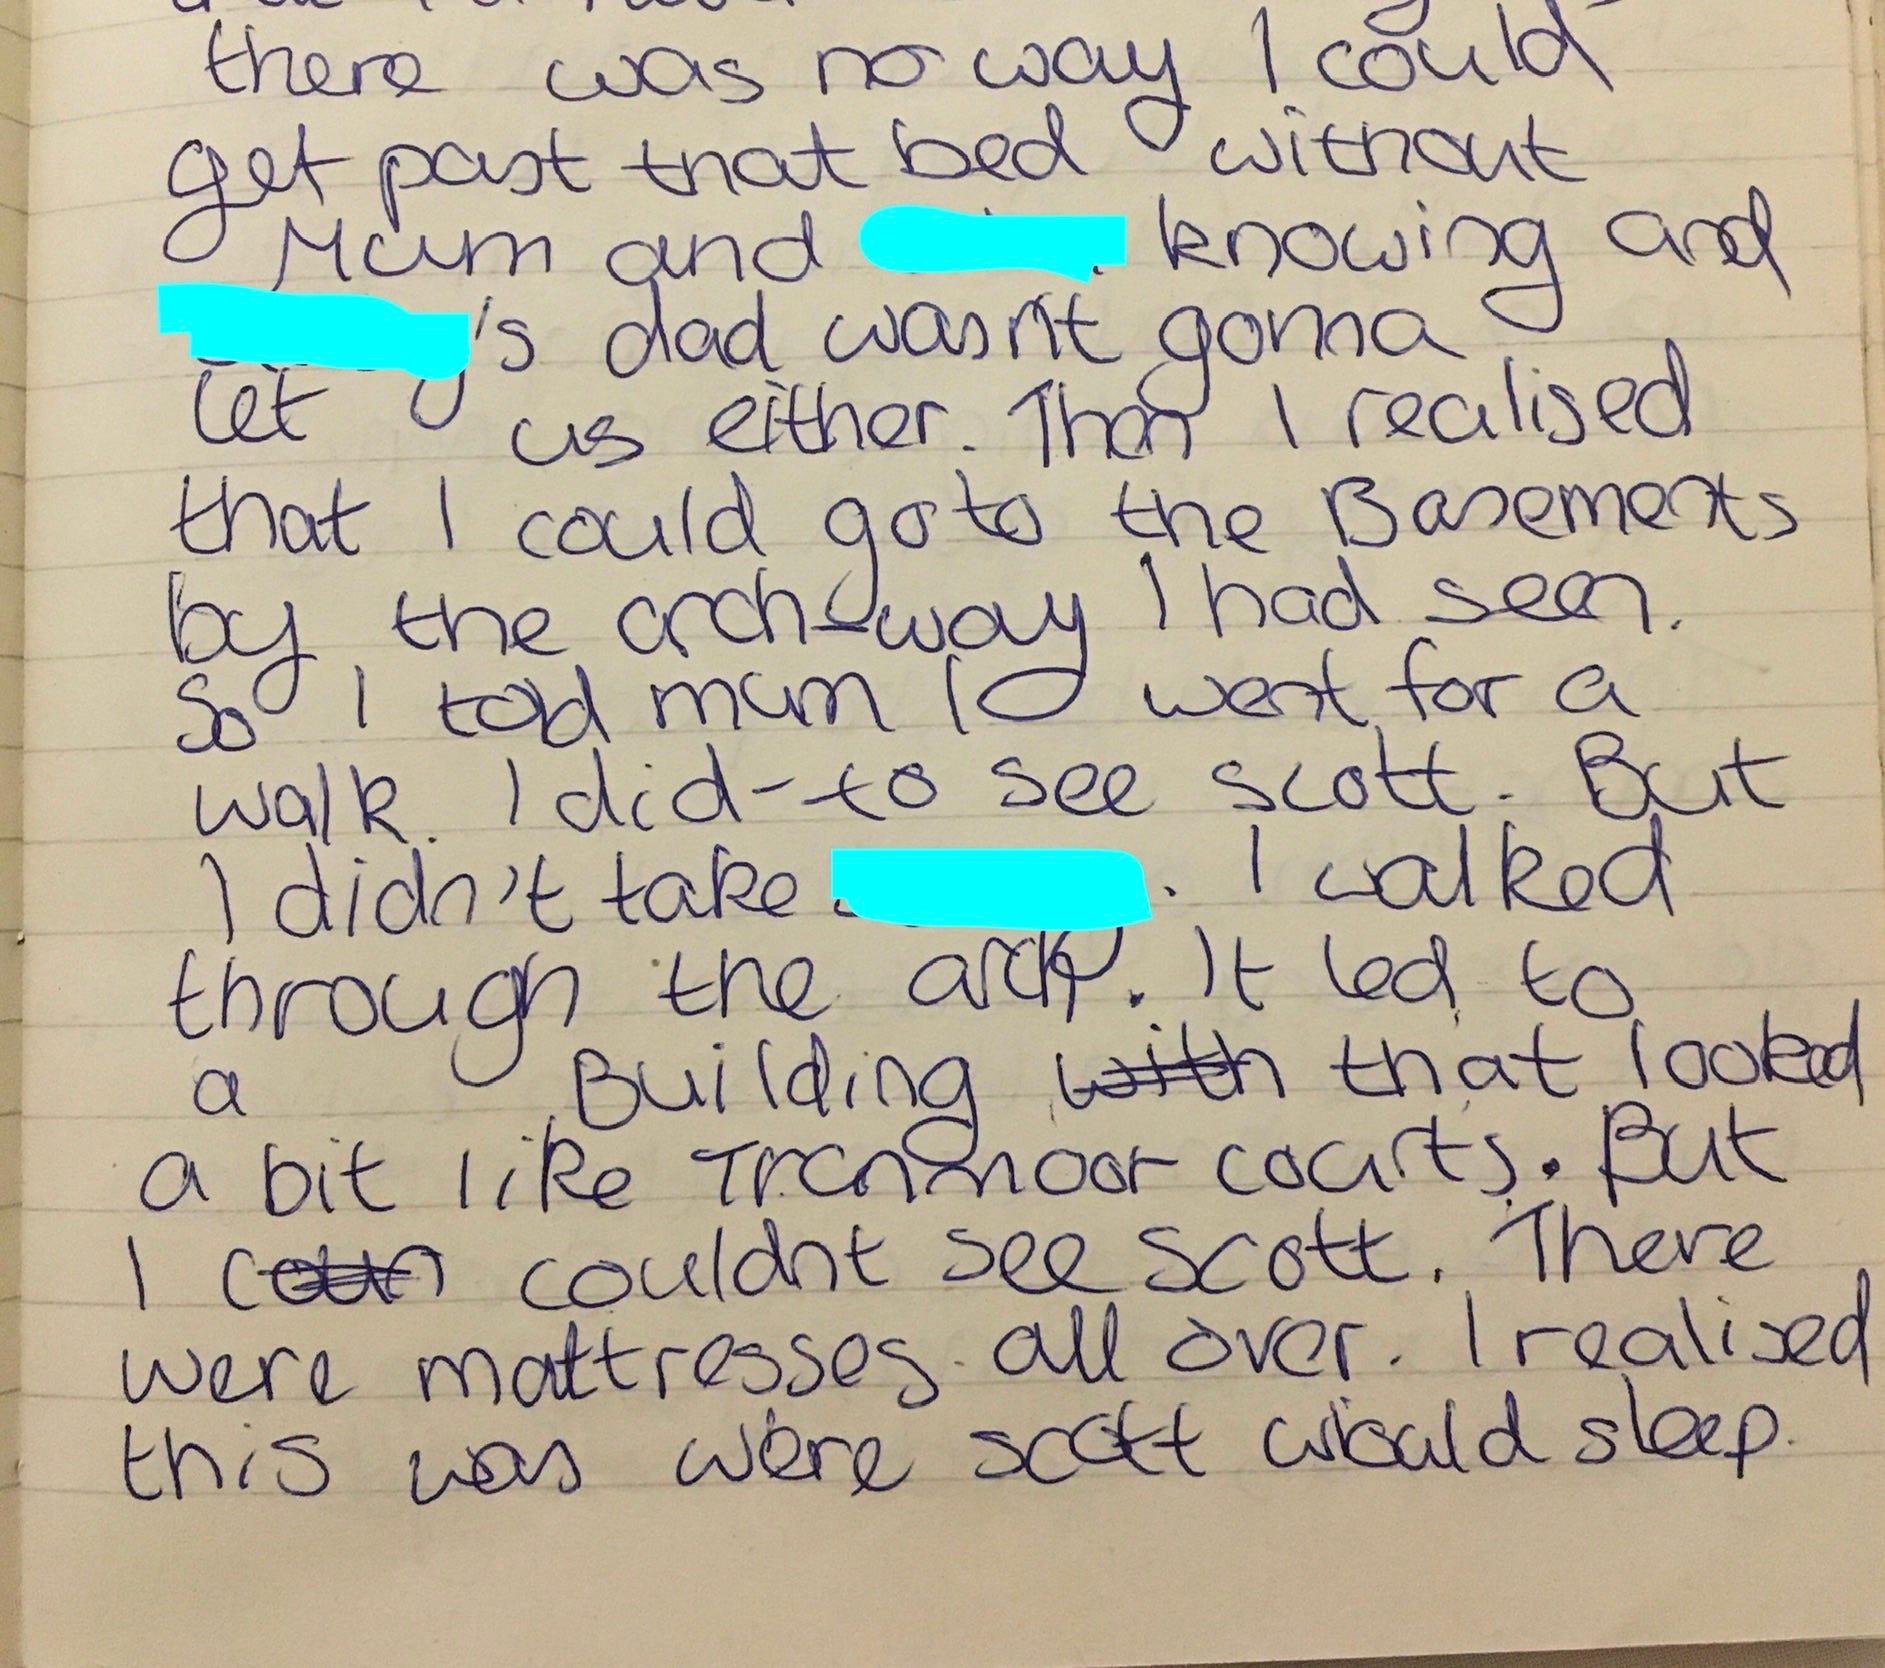 there was no way I could
get past that bed without
Mum and knowing and
's dad wasn't gonna
let us either. Then I realised
that I could go to the Basements
by the arch-way I had seen.
So I told mum I went for a
walk. I did - to see scott. But
I didn't take . I walked
through the arch. It led to
a Building with that looked
a bit like Tranmoor courts. But
I couldnt see scott. There
were mattresses all over. I realised
this was were scott would sleep.